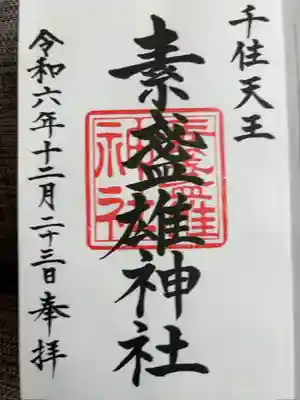 千住天王
素盞雄神社
令和六年十二月二十三日奉拝